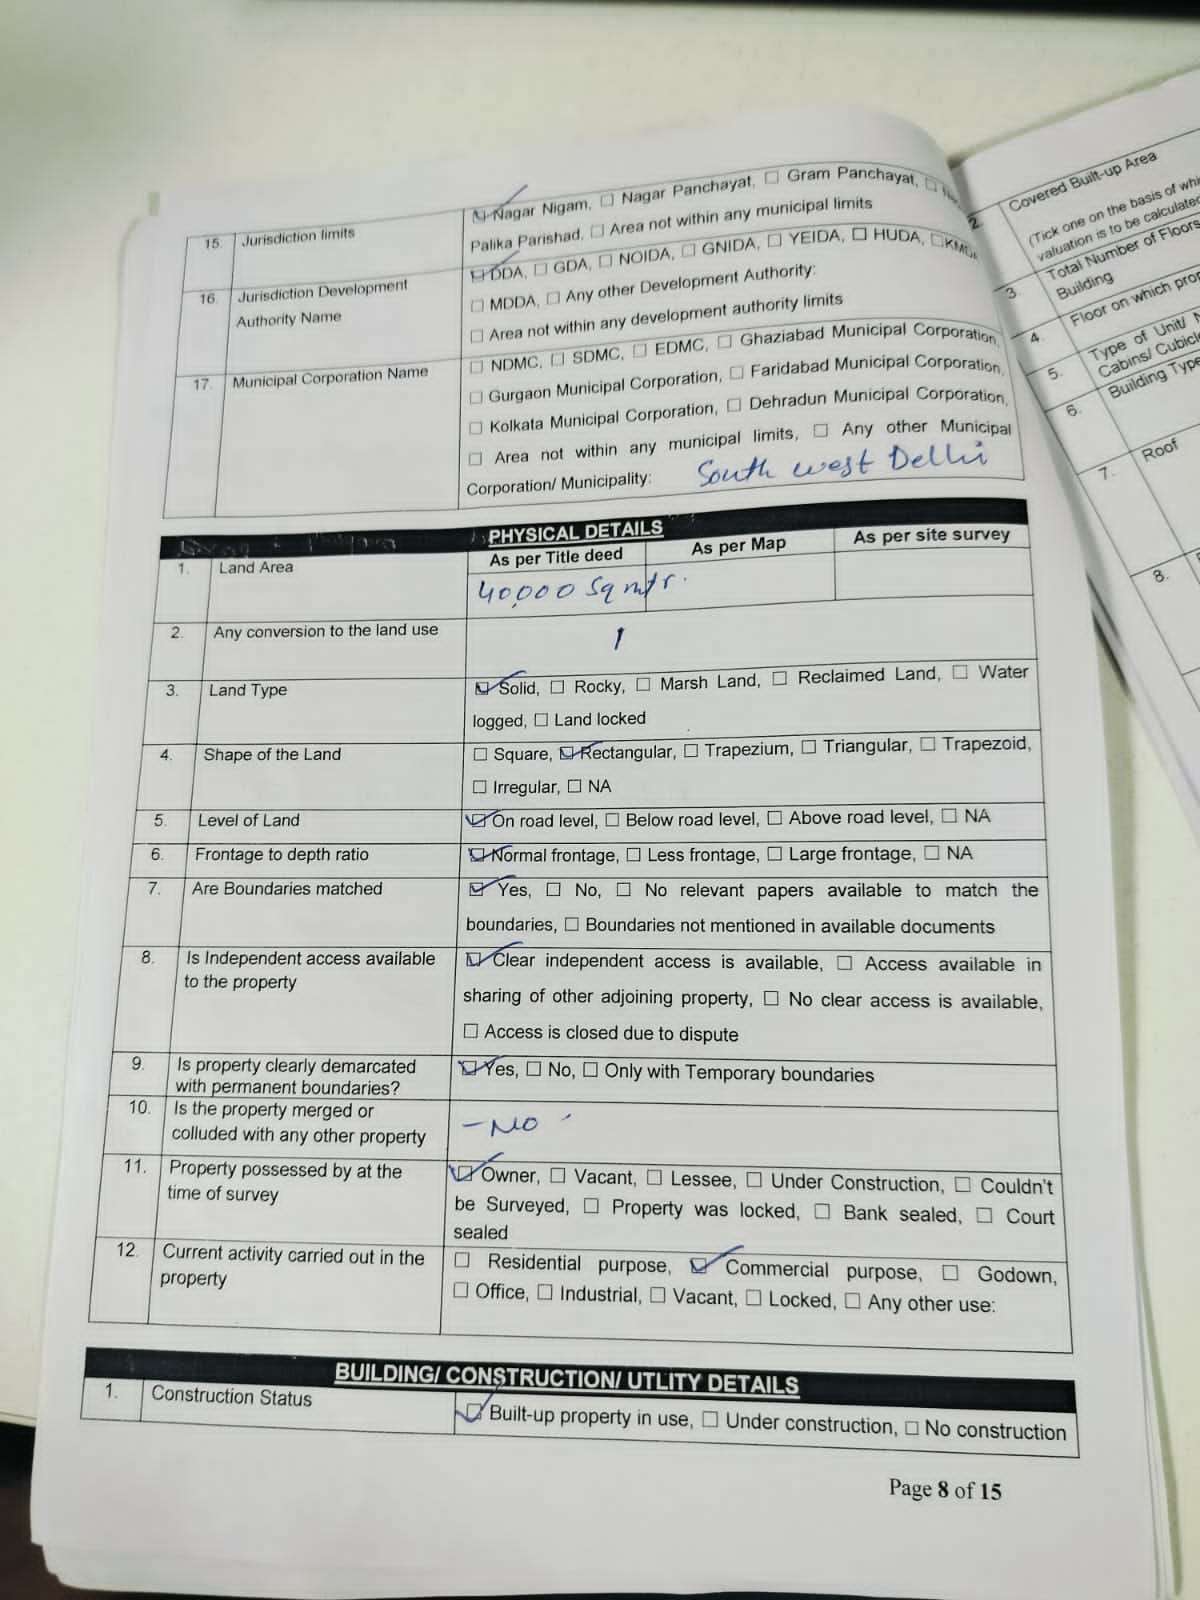 15. Jurisdiction limits ☑ Nagar Nigam, ☐ Nagar Panchayat, ☐ Gram Panchayat, ☐
Palika Parishad, ☐ Area not within any municipal limits
16. Jurisdiction Development Authority Name ☑ DDA, ☐ GDA, ☐ NOIDA, ☐ GNIDA, ☐ YEIDA, ☐ HUDA, ☐ KMDA
☐ MDDA, ☐ Any other Development Authority:
☐ Area not within any development authority limits
17. Municipal Corporation Name ☐ NDMC, ☐ SDMC, ☐ EDMC, ☐ Ghaziabad Municipal Corporation,
☐ Gurgaon Municipal Corporation, ☐ Faridabad Municipal Corporation,
☐ Kolkata Municipal Corporation, ☐ Dehradun Municipal Corporation,
☐ Area not within any municipal limits, ☐ Any other Municipal
Corporation/ Municipality: South west Delhi
PHYSICAL DETAILS
1. Land Area As per Title deed As per Map As per site survey
40,000 Sq mtr.
2. Any conversion to the land use /
3. Land Type ☑ Solid, ☐ Rocky, ☐ Marsh Land, ☐ Reclaimed Land, ☐ Water
logged, ☐ Land locked
4. Shape of the Land ☐ Square, ☑ Rectangular, ☐ Trapezium, ☐ Triangular, ☐ Trapezoid,
☐ Irregular, ☐ NA
5. Level of Land ☑ On road level, ☐ Below road level, ☐ Above road level, ☐ NA
6. Frontage to depth ratio ☑ Normal frontage, ☐ Less frontage, ☐ Large frontage, ☐ NA
7. Are Boundaries matched ☑ Yes, ☐ No, ☐ No relevant papers available to match the
boundaries, ☐ Boundaries not mentioned in available documents
8. Is Independent access available ☑ Clear independent access is available, ☐ Access available in
to the property sharing of other adjoining property, ☐ No clear access is available,
☐ Access is closed due to dispute
9. Is property clearly demarcated ☑ Yes, ☐ No, ☐ Only with Temporary boundaries
with permanent boundaries?
10. Is the property merged or
colluded with any other property - No
11. Property possessed by at the ☑ Owner, ☐ Vacant, ☐ Lessee, ☐ Under Construction, ☐ Couldn't
time of survey be Surveyed, ☐ Property was locked, ☐ Bank sealed, ☐ Court
sealed
12. Current activity carried out in the ☐ Residential purpose, ☑ Commercial purpose, ☐ Godown,
property ☐ Office, ☐ Industrial, ☐ Vacant, ☐ Locked, ☐ Any other use:
BUILDING/ CONSTRUCTION/ UTLITY DETAILS
1. Construction Status ☑ Built-up property in use, ☐ Under construction, ☐ No construction
Page 8 of 15
2. Covered Built-up Area
(Tick one on the basis of
valuation is to be calculated
3. Total Number of Floors
Building
4. Floor on which
5. Type of Unit/
Cabins/
6. Building Type
7. Roof
8.